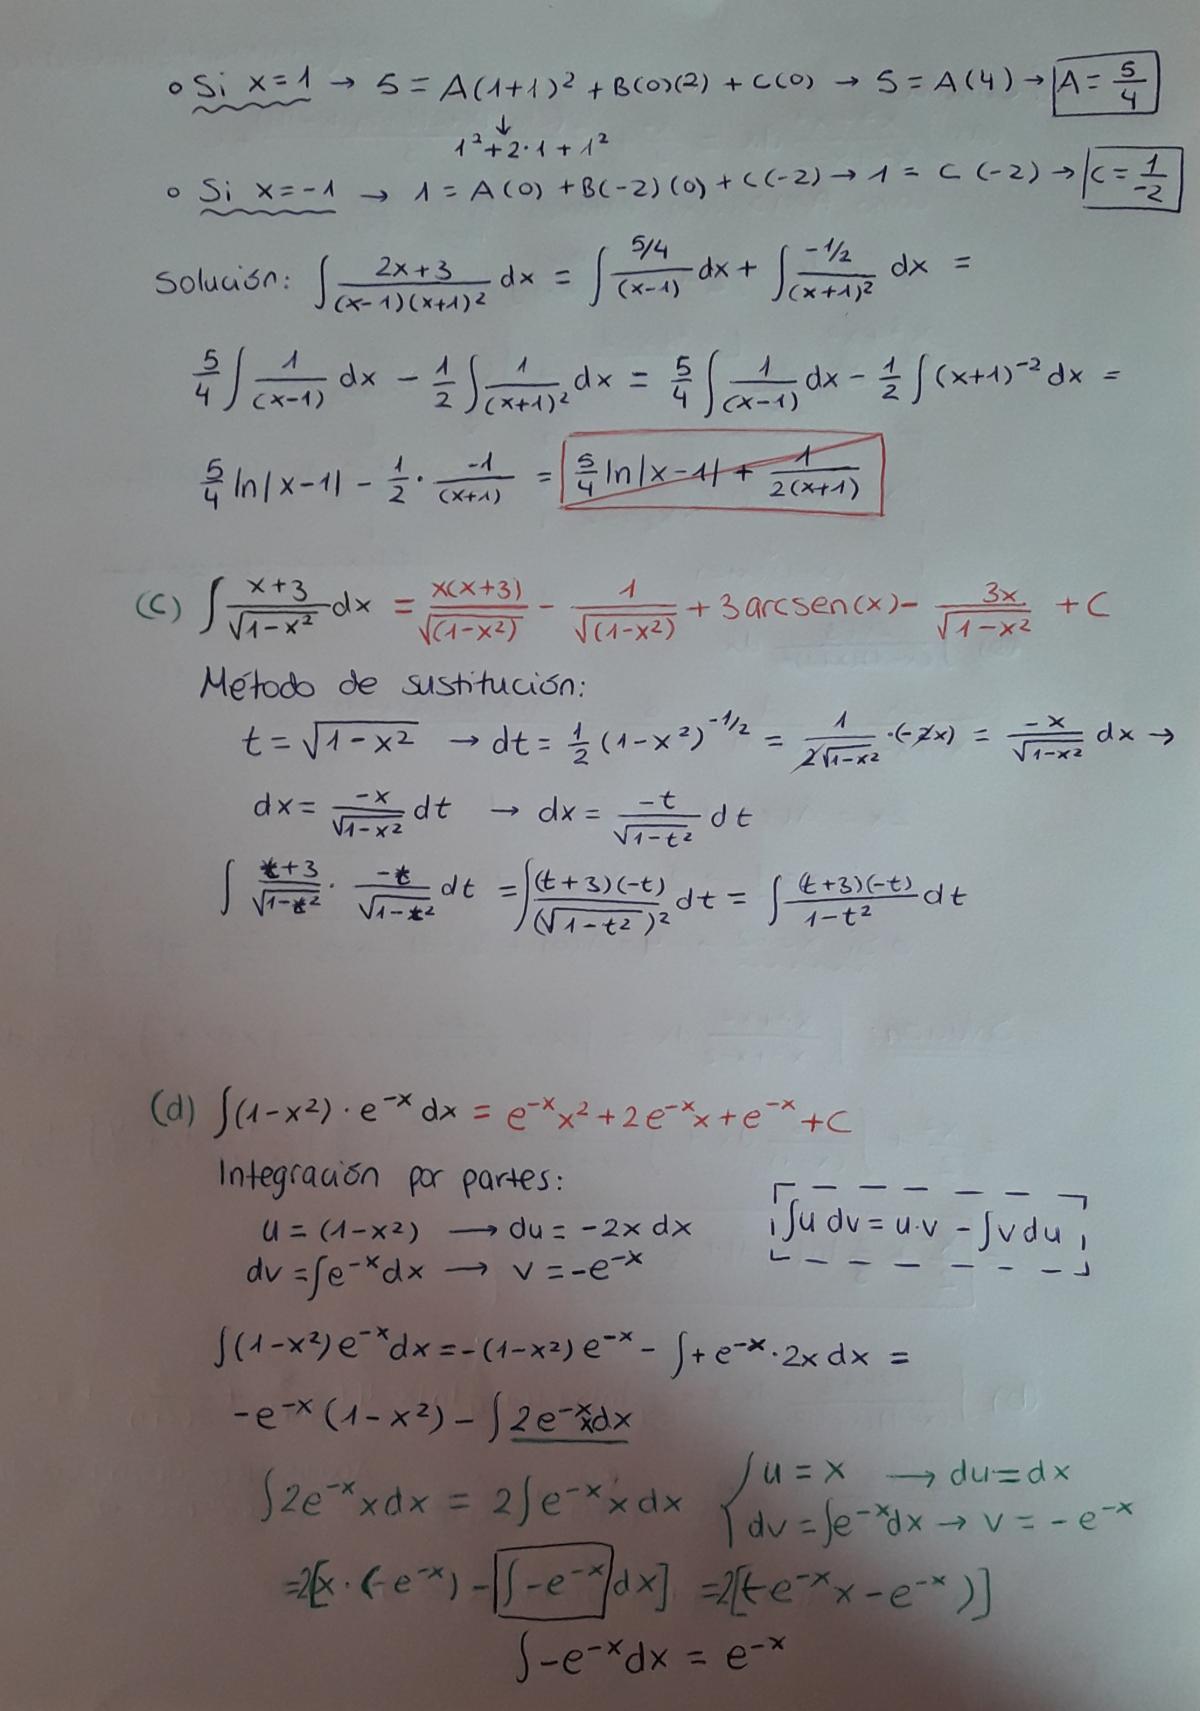 ∘ Si x=1 → 5 = A(1+1)² + B(0)(2) + C(0) → 5 = A(4) → A = 5/4
↓
1² + 2·1 + 1²
∘ Si x=-1 → 1 = A(0) + B(-2)(0) + C(-2) → 1 = C(-2) → C = 1/-2
Solución: ∫ (2x+3)/((x-1)(x+1)²) dx = ∫ (5/4)/(x-1) dx + ∫ (-1/2)/(x+1)² dx =
5/4 ∫ 1/(x-1) dx - 1/2 ∫ 1/(x+1)² dx = 5/4 ∫ 1/(x-1) dx - 1/2 ∫ (x+1)⁻² dx =
5/4 ln|x-1| - 1/2 · -1/(x+1) = 5/4 ln|x-1| + 1/(2(x+1))
(c) ∫ (x+3)/√(1-x²) dx = x(x+3)/√(1-x²) - 1/√(1-x²) + 3 arcsen(x) - 3x/√(1-x²) + C
Método de sustitución:
t = √(1-x²) → dt = 1/2 (1-x²)^(-1/2) = 1/(2√(1-x²)) · (-2x) = -x/√(1-x²) dx →
dx = -x/√(1-x²) dt → dx = -t/√(1-t²) dt
∫ (t+3)/√(1-t²) · -t/√(1-t²) dt = ∫ (t+3)(-t)/(√(1-t²))² dt = ∫ (t+3)(-t)/(1-t²) dt
(d) ∫(1-x²)·e⁻ˣ dx = e⁻ˣx² + 2e⁻ˣx + e⁻ˣ + C
Integración por partes:
u = (1-x²) → du = -2x dx
∫u dv = u·v - ∫v du
dv = ∫e⁻ˣdx → v = -e⁻ˣ
∫(1-x²)e⁻ˣdx = -(1-x²)e⁻ˣ - ∫+e⁻ˣ·2x dx =
-e⁻ˣ(1-x²) - ∫2e⁻ˣxdx
∫2e⁻ˣxdx = 2∫e⁻ˣxdx { u = x → du = dx
dv = ∫e⁻ˣdx → v = -e⁻ˣ
=2[x·(-e⁻ˣ) - ∫-e⁻ˣdx] =2[(-e⁻ˣx - e⁻ˣ)]
∫-e⁻ˣdx = e⁻ˣ